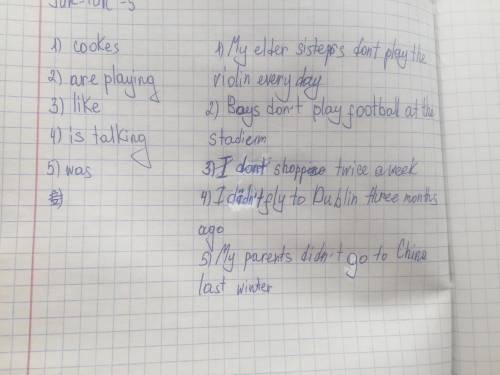 1) cookes
2) are playing
3) like
4) is talking
5) was
1) My elder sisteps don't play the
violin every day
2) Boys don't play football at the
stadium
3) I don't shopp twice a week
4) I didn't fly to Dublin three months
ago
5) My parents didn't go to China
last winter